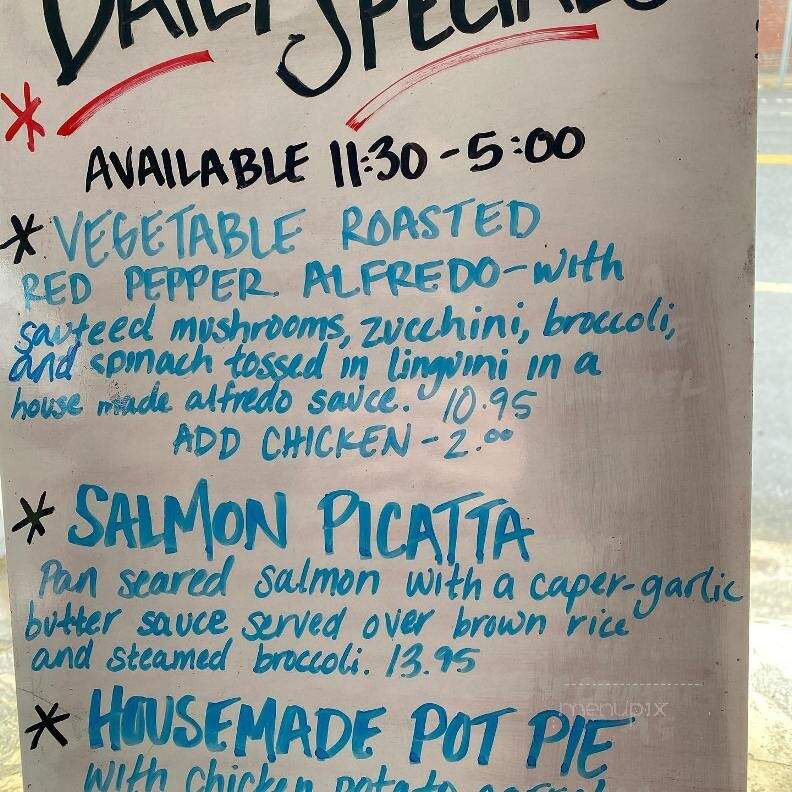 DAILY SPECIALS
* AVAILABLE 11:30-5:00
* VEGETABLE ROASTED
RED PEPPER ALFREDO-with
sauteed mushrooms, zucchini, broccoli,
and spinach tossed in linguini in a
house made alfredo sauce. 10.95
ADD CHICKEN-2.00
* SALMON PICATTA
Pan seared salmon with a caper-garlic
butter sauce served over brown rice
and steamed broccoli. 13.95
menupix
* HOUSEMADE POT PIE
with chicken potato